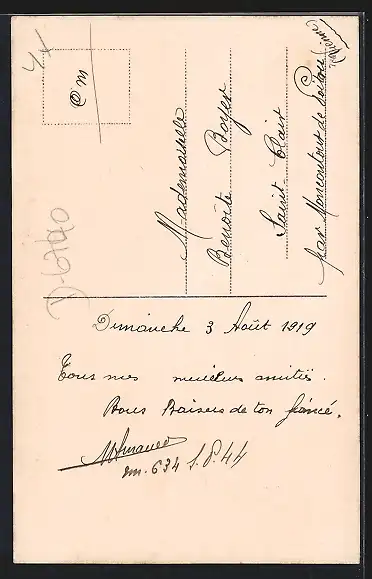 4x
F.M
Mademoiselle
Benoîte Boyer
Saint-Clair
par Moncontour de Poitou
(Vienne)
D-6740
Dimanche 3 Août 1919
Tous mes meilleurs amitiés.
Bons Baisers de ton fiancé.
rm. 634 S.P. 44